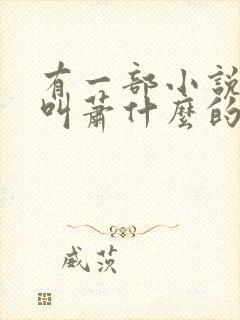 有一部小說
叫蕭什麼的
威茨